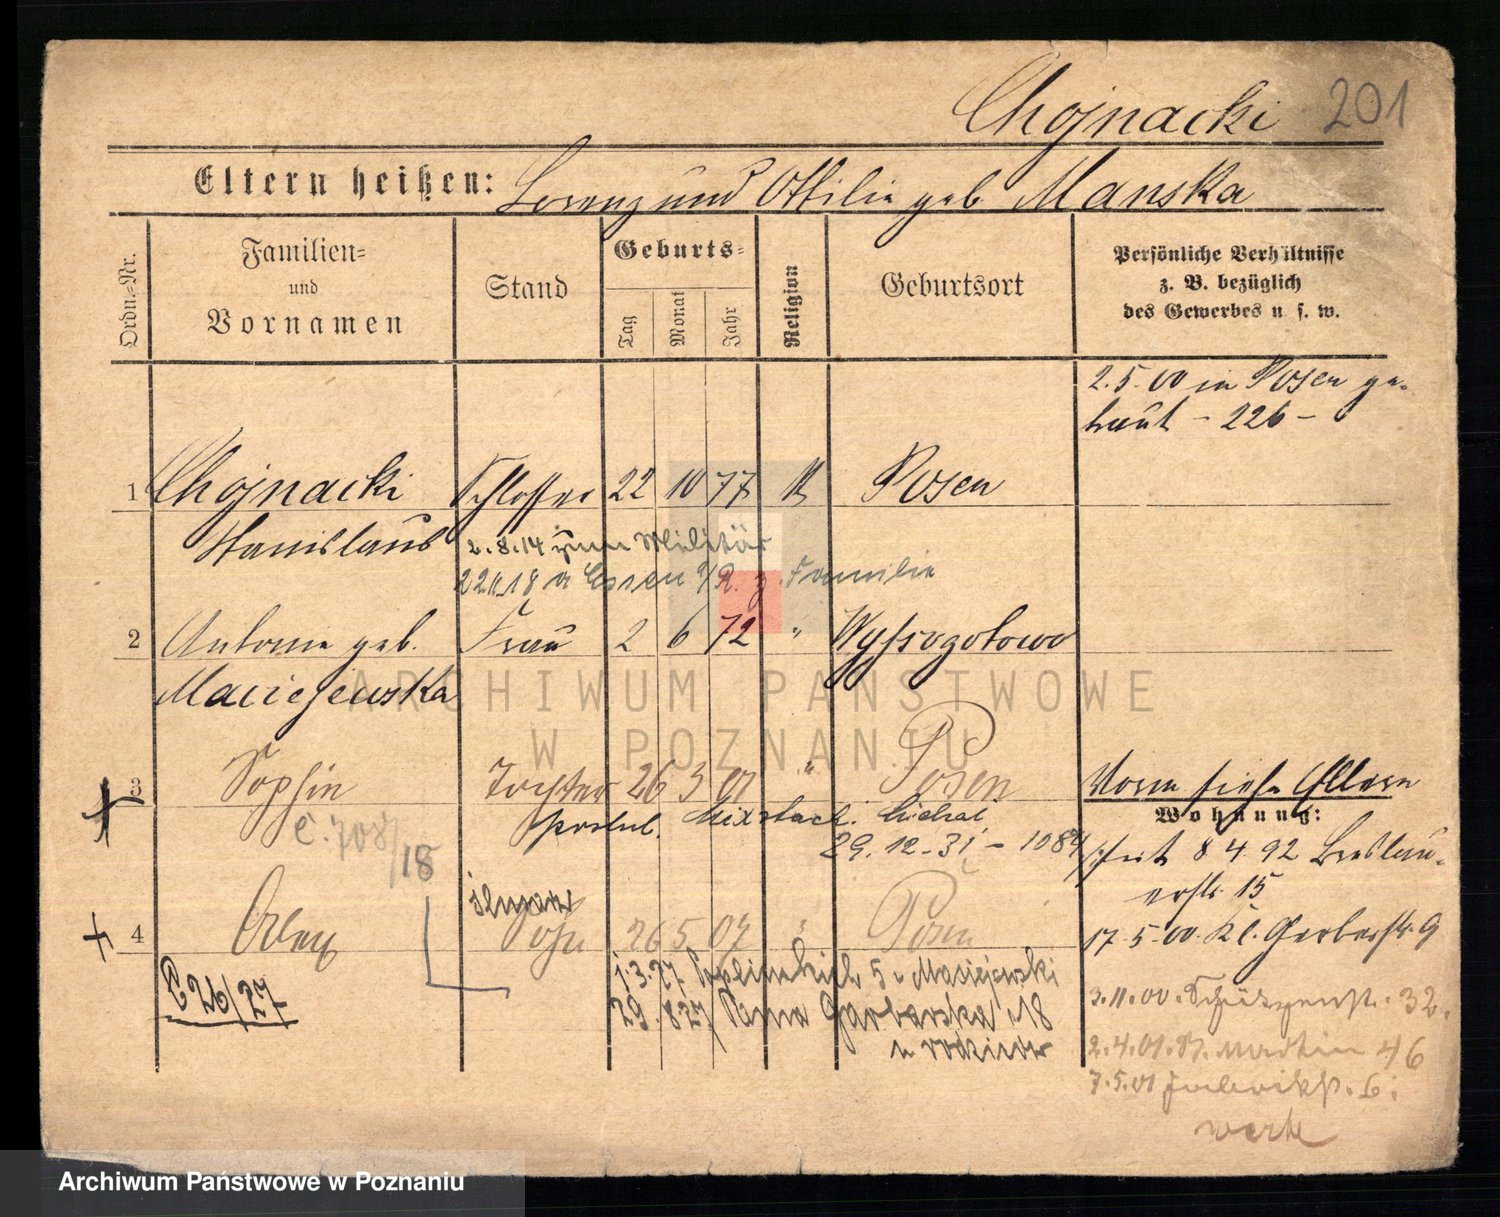 Chojnacki 201
Eltern heißen: Lorenz und Ottilie geb Manska
Ordn.-Nr.
Familien-
und
Vornamen
Stand
Geburts-
Tag
Monat
Jahr
Religion
Geburtsort
Persönliche Verhältnisse
z. B. bezüglich
des Gewerbes u. s. w.
2.5.00 in Posen ge-
traut - 226 -
1 Chojnacki Schlosser 22 10 77 K Posen
Stanislaus
2.8.14 zum Militär
Essen a/R. z. Familie
2 Antonie geb. Frau 2 6 72 " Wyssogotowo
Maciejewska
3 Sophie Tochter 26 3 01 " Posen
Vorm siehe Eltern
Wohnung:
29.12.31 - 1084
C. 708/18
seit 8 4 92 Breslau-
erstr. 15
4 Sohn 26 5 07 " Posen
17.5.00 Kl. Gerberstr. 9
C 26/27
1.3.27 5 Maciejewski
29.8.27 Garbarska 18
u rodziców
3.11.00. Schützenstr. 32.
2.4.01. St. Martin 46
7.5.01
ARCHIWUM PAŃSTWOWE
W POZNANIU
Archiwum Państwowe w Poznaniu